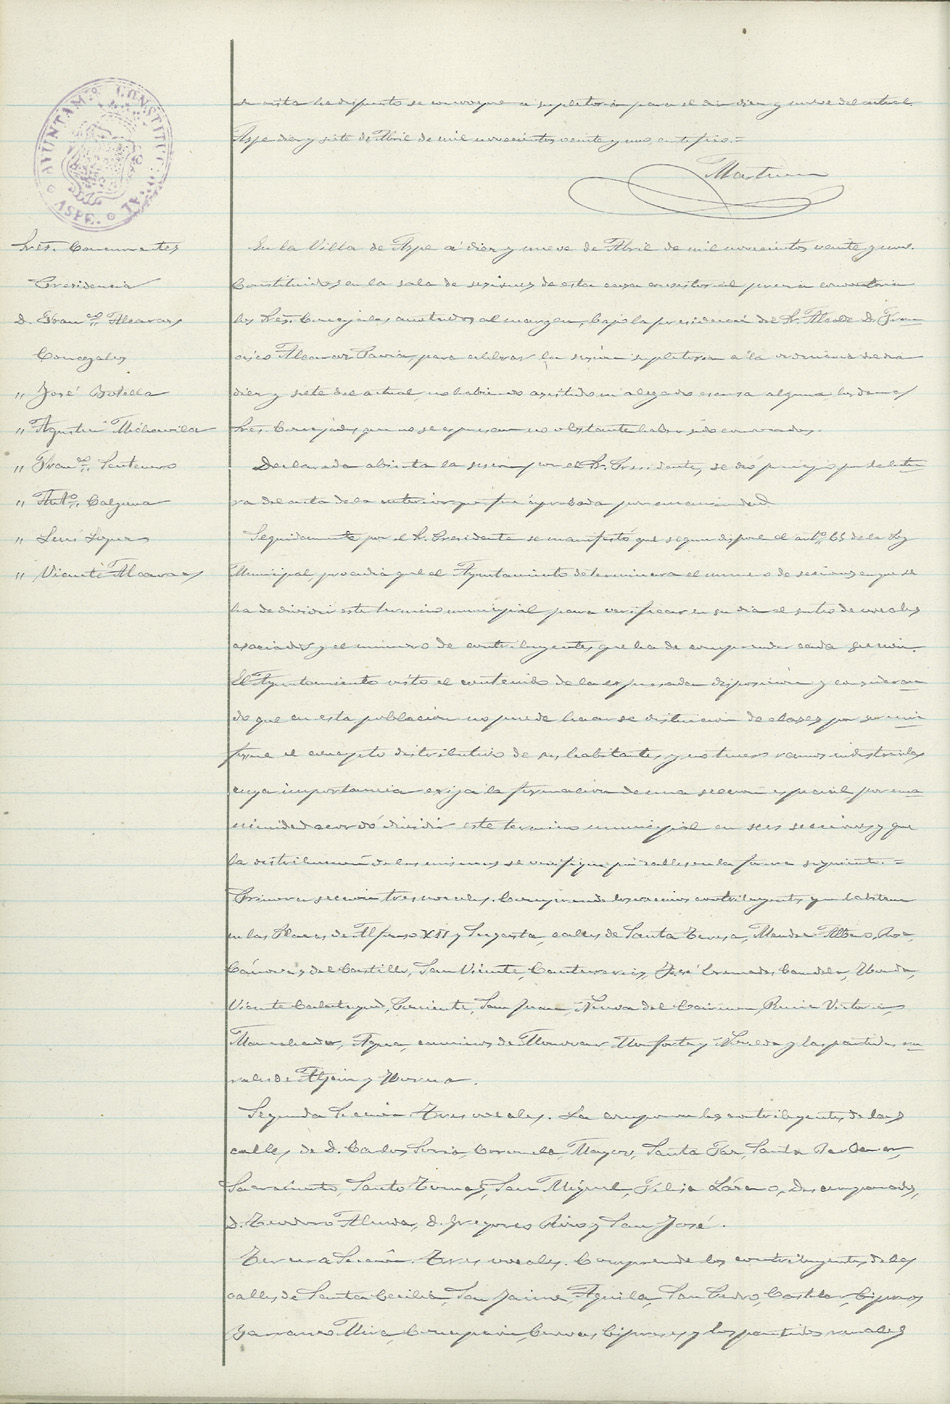 AYUNTAMTO CONSTITUCIONAL
ASPE.
se cita ha dispuesto se convoque a supletoria para el dia diez y nueve del actual.
Aspe diez y siete de Abril de mil novecientos veinte y uno, certifico.=
Sres. Concurrentes
Presidencia
D. Franco. Alcaraz
Concejales
" José Botella
" Agustin
" Franco.
" Anto. Calpena
" Luis Lopez
" Vicente Alcaraz
En la Villa de Aspe á diez y nueve de Abril de mil novecientos veinte y uno.
Constituidos en la sala de sesiones de esta casa consistorial previa convocatoria
los Sres. Concejales anotados al margen, bajo la presidencia del Sr. Alcalde D. Fran-
cisco Alcaraz Pavia, para celebrar la sesion supletoria a la ordinaria del dia
diez y siete del actual, no habiendo asistido ni alegado escusa alguna los demas
Sres. Concejales que no se expresan no obstante haber sido convocados.
Declarada abierta la sesion por el Sr. Presidente, se dió principio por la lectu-
ra del acta de la anterior que fué aprobada por unanimidad
Seguidamente por el Sr. Presidente se manifestó que segun dispone el arto. 65 de la Ley
Municipal procedia que el Ayuntamiento determinara el numero de secciones en que se
ha de dividir este termino municipal para verificar en su dia el sorteo de vocales
asociados y el numero de contribuyentes que ha de comprender cada seccion.
El Ayuntamiento visto el contenido de la expresada disposicion y consideran-
do que en esta poblacion no puede hacerse distincion de clases por ser uni-
forme el concepto distributivo de sus habitantes, y no tener ramos industriales
cuya importancia exija la formacion de una seccion especial por una-
nimidad acordó dividir este termino municipal en seis secciones y que
la distribucion de las mismas se verifique por calles en la forma siguiente.=
Primera seccion tres vocales. Comprende los vecinos contribuyentes que habitan
en las Plazas de Alfonso XII y Sagasta, calles de Santa Teresa, Mendez
Cánovas del Castillo, San Vicente, Cantererias, José Candela,
Vicente Calatayud, Poniente, San Juan, Nuestra Sra del Carmen, Reina Victoria,
Agua, caminos de Monovar Monforte y Novelda y las partidas ru-
rales de Aljau y
Segunda Seccion Tres vocales. La componen los contribuyentes de las
calles de D. Carlos Soria, Coronel Mayor, Santa Faz, Santa Barbara,
Sacramento, Santo Tomas, San Miguel, Desamparados,
D. Teodoro Alenda, D. Gregorio Rizo y San José.
Tercera Seccion. Tres vocales. Comprende los contribuyentes de las
calles de Santa Cecilia, San Jaime, Aguila, San Pedro, Castelar,
Barranco Mira, Concepcion, Cuevas, Cipreses y los partidos rurales